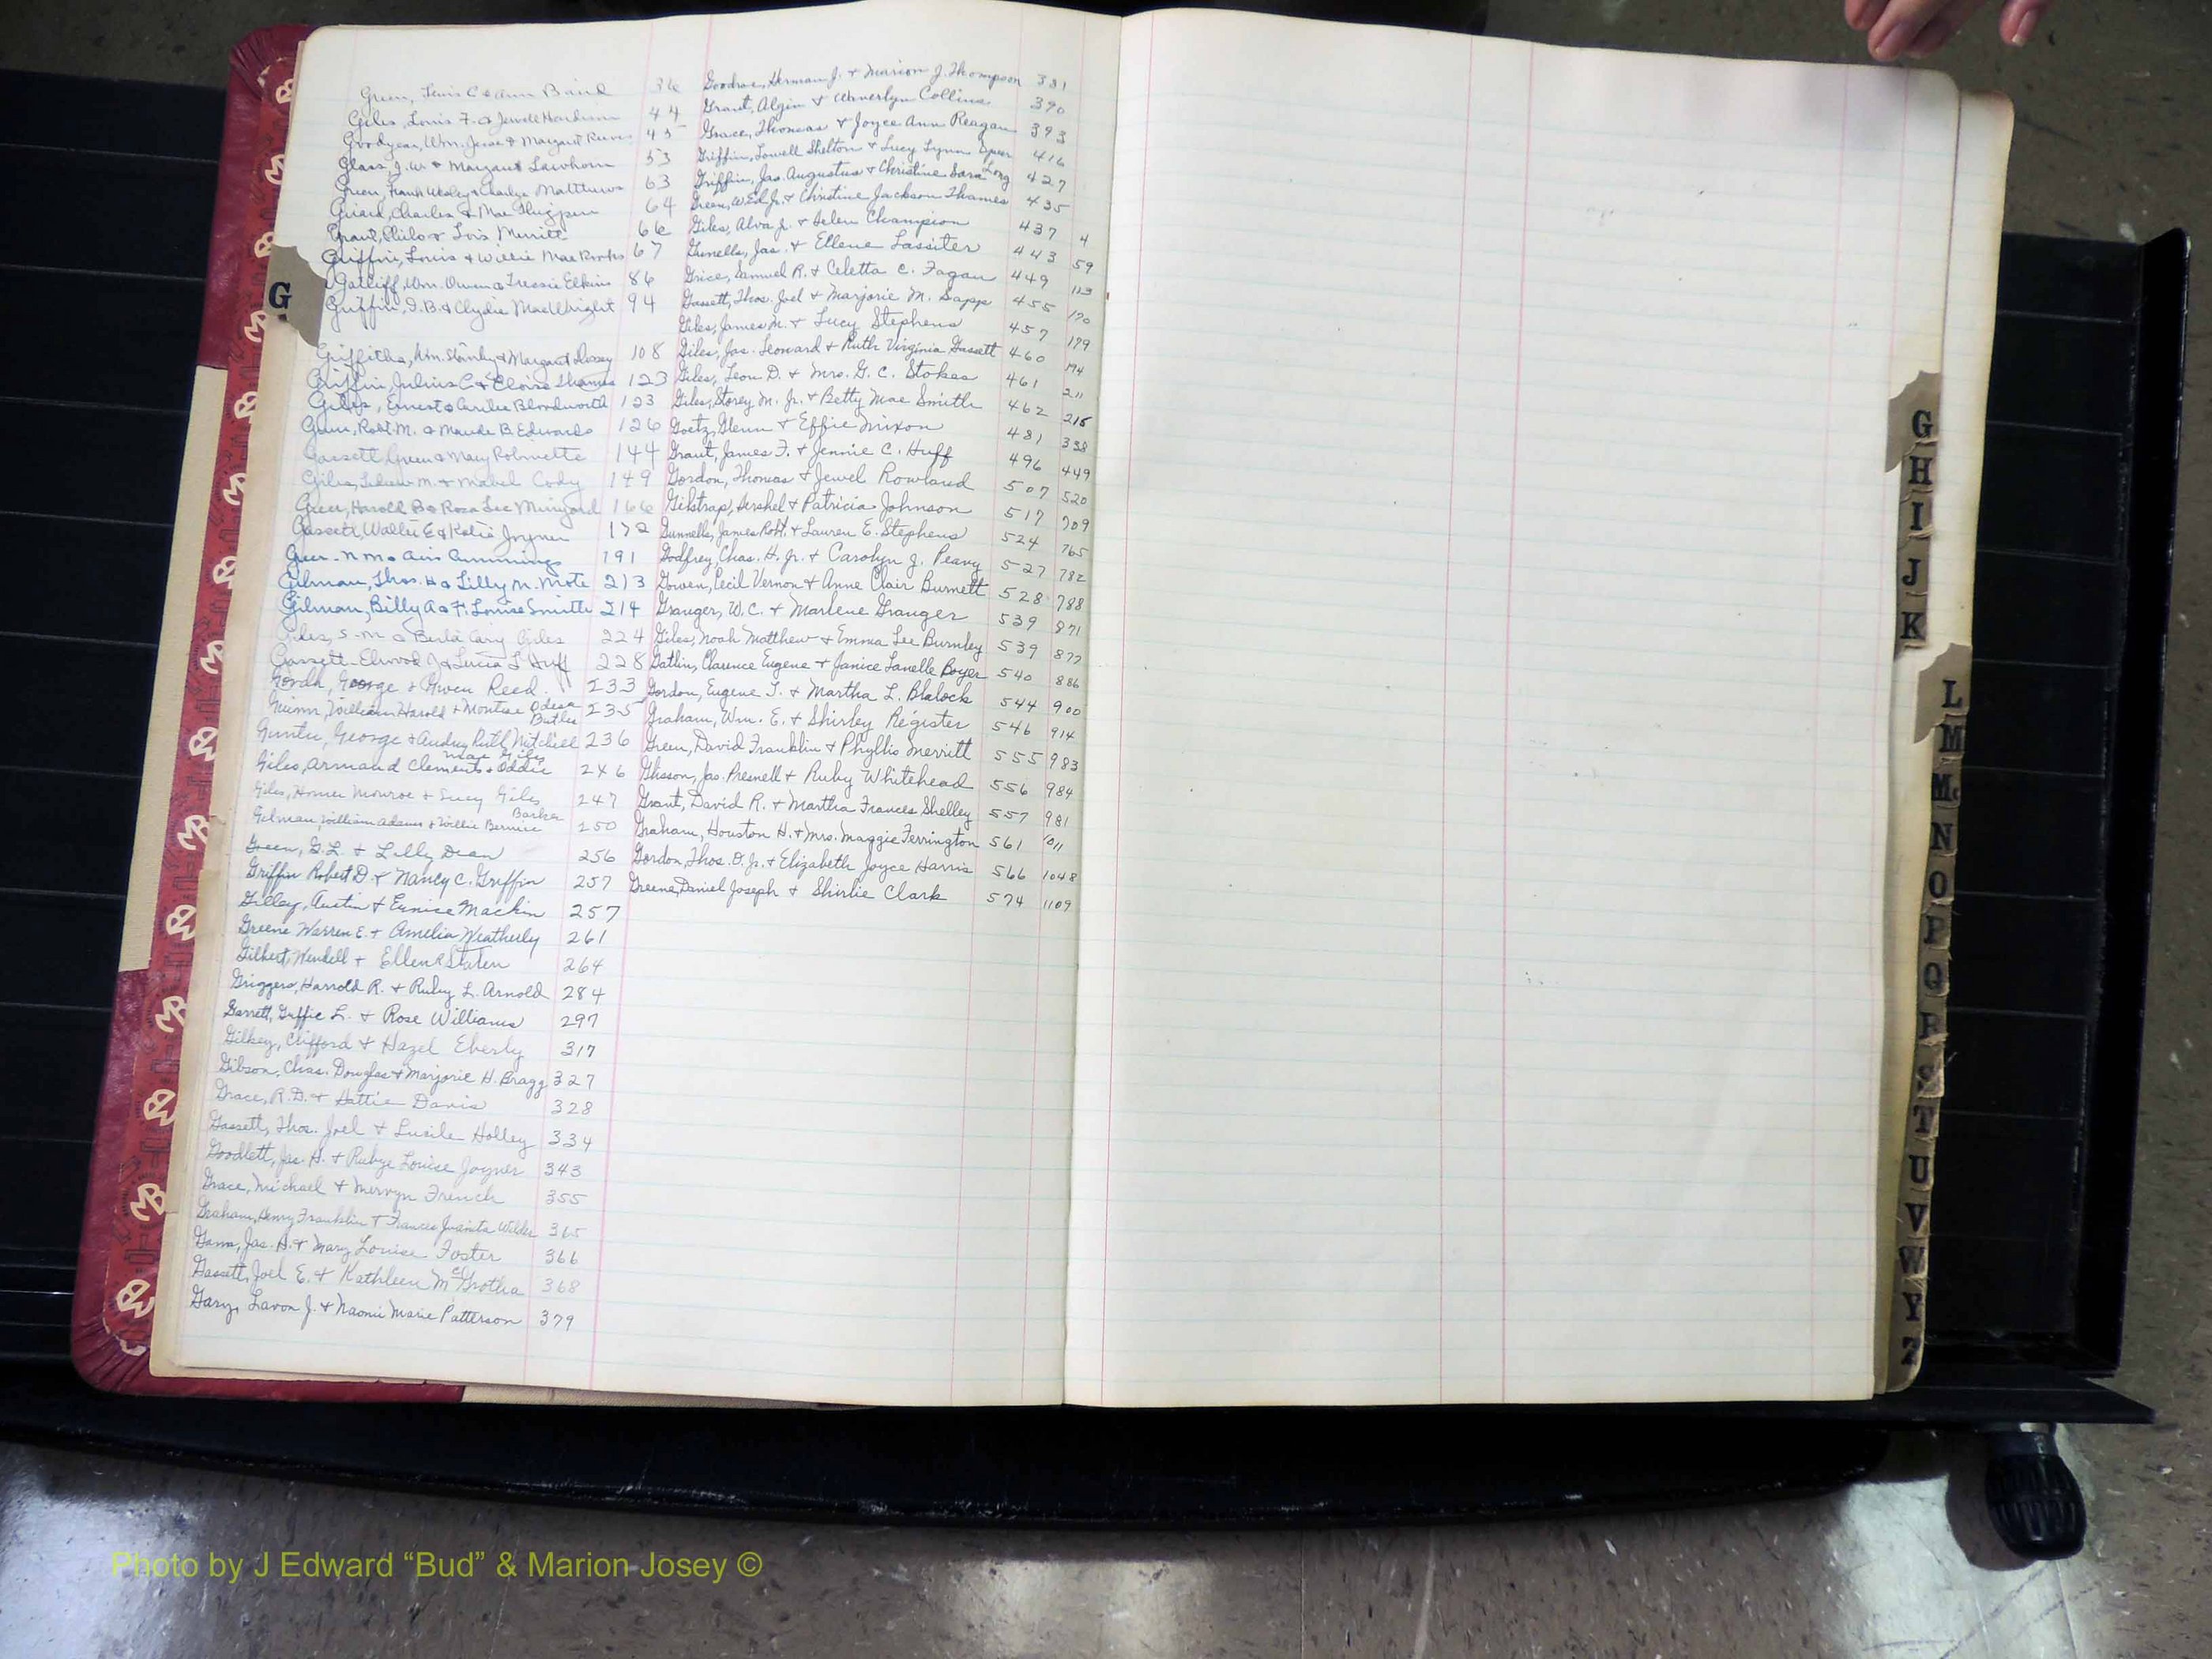 Green, Lewis C & Ann Baird 36
Giles, Louis F. & Jewell Hardison 44
Goodyear, Wm. Jesse & Margaret Reeves 45
Glass, J. W. & Margaret Lawhorn 53
Green, Frank Wesley & Matthews 63
Girard, Charles & Mae Thigpen 64
Grant, Philo & Lois Merritt 66
Griffin, Louis & Willie Mae Rooks 67
Gatliff, Wm. Owen & Tressie Elkins 86
Griffin, I. B. & Clydie Mae Wright 94
G
Griffiths, Wm. Stanley & Margaret 108
Griffin, Julius C. & Eloise Thames 123
Giles, Ernest & Bloodworth 123
Gunn, Robt. M. & Maude B. Edwards 126
Gassett, Green & Mary Robinette 144
Giles, M. & Mabel Cody 149
Greer, Harold B & Rosa Lee Minyard 166
Gassett, Walter E & Katie Joyner 172
Greer, N M & Cummings 191
Gilman, Thos. H & Lilly M. Mote 213
Gilman, Billy A & F. Louise Smith 214
Giles, S. M. & Berta Cary Giles 224
Gassett, Elwood J & Lucia L Huff 228
George & Gwen Reed. 233
Gunn, William Harold & Montise Odessa Butler 235
Gunter, George & Audrey Ruth Mitchell 236
Giles, Armand Clements & Oddie Mae Giles 246
Giles, Homer Monroe & Lucy Giles 247
Gilman, William Adams & Willie Bernice Barker 250
Green, G. L. & Lilly Dean 256
Griffin Robert D. & Nancy C. Griffin 257
Gilley, Austin & Eunice Mackin 257
Greene Warren E. & Amelia Weatherly 261
Gilbert, Wendell & Ellen R Staten 264
Griggers, Harrold R. & Ruby L. Arnold 284
Garrett, Guffie L. & Rose Williams 297
Gilkey, Clifford & Hazel Eberly 317
Gibson, Chas. Douglas & Marjorie H. Bragg 327
Grace, R. D. & Hattie Davis 328
Gassett, Thos. Joel & Lucile Holley 334
Goodlett, Jas. H. & Rubye Louise Joyner 343
Grace, Michael & Mervyn French 355
Graham, Henry Franklin & Frances Juanita Wilder 365
Gann, Jas. A. & Mary Louise Foster 366
Gassett, Joel E. & Kathleen McGrotha 368
Gary, Lavon J. & Naomi Marie Patterson 379
Goodroe, Herman J. & Marion J. Thompson 381
Grant, Algin & Waverlyn Collins 390
Grace, Thomas & Joyce Ann Reagan 393
Griffin, Lowell Shelton & Lucy Lynn Speer 416
Griffin, Jas. Augustus & Christine Sara Long 427
Green, W. Ed Jr. & Christine Jackson Thames 435
Giles, Alva J. & Helen Champion 437 4
Gunells, Jas. & Ellene Lassiter 443 59
Grice, Samuel R. & Celetta C. Fagan 449 113
Gassett, Thos. Joel & Marjorie M. Sapp 455 170
Giles, James M. & Lucy Stephens 457 179
Giles, Jas. Leonard & Ruth Virginia Gassett 460 194
Giles, Leon D. & Mrs. G. C. Stokes 461 211
Giles, Storey M. Jr. & Betty Mae Smith 462 215
Goetz, Glenn & Effie Mixon 481 338
Grant, James F. & Jennie C. Huff 496 449
Gordon, Thomas & Jewel Rowland 507 520
Gilstrap, Hershel & Patricia Johnson 517 709
Gunnells, James Robt. & Lauren E. Stephens 524 765
Godfrey, Chas. H. Jr. & Carolyn J. Peavy 527 782
Gowen, Cecil Vernon & Anne Clair Burnett 528 788
Granger, W. C. & Marlene Granger 539 871
Giles, Noah Matthew & Emma Lee Burnley 539 877
Gatlin, Clarence Eugene & Janice Lanelle Boyer 540 886
Gordon, Eugene T. & Martha L. Blalock 544 900
Graham, Wm. E. & Shirley Register 546 914
Green, David Franklin & Phyllis Merritt 555 983
Glisson, Jas. Presnell & Ruby Whitehead 556 984
Grant, David R. & Martha Frances Shelley 557 981
Graham, Houston H. & Mrs. Maggie Ferrington 561 1011
Gordon, Thos. O. Jr. & Elizabeth Joyce Harris 566 1048
Greene, Daniel Joseph & Shirlie Clark 574 1109
G
H
I
J
K
L
M
Mc
N
O
P
Q
R
S
T
U
V
W
Y
Z
Photo by J Edward “Bud” & Marion Josey ©